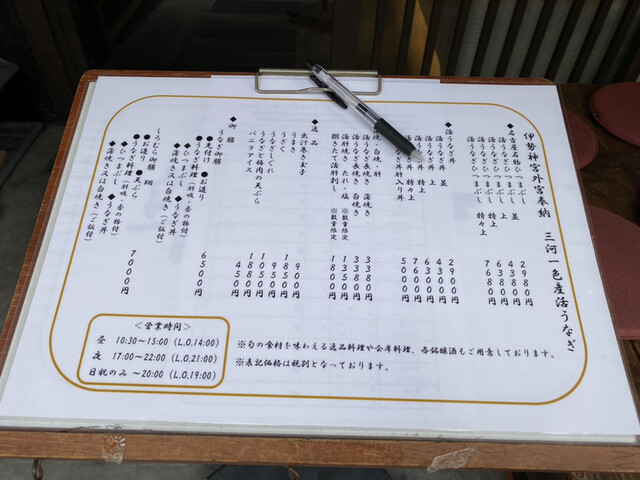 伊勢神宮外宮奉納 三河一色産活うなぎ
◆名古屋名物ひつまぶし
活うなぎひつまぶし 並 2980円
活うなぎひつまぶし 上 4380円
活うなぎひつまぶし 特上 6380円
活うなぎひつまぶし 特々上 7680円
◆活うなぎ丼
活うなぎ丼 並 2900円
活うなぎ丼 上 4300円
活うなぎ丼 特上 6300円
活うなぎ丼 特々上 7600円
活うなぎ肝入り丼
焼・白焼・肝
活うなぎ長焼き 蒲焼き 3380円
活うなぎ長焼き 白焼き 3380円
活肝焼き たれ・塩 ※数量限定
捌きたて活肝刺し ※数量限定
◆逸品
出汁巻き玉子 900円
うまき 1850円
うなぎしぐれ 950円
うなぎと梅肉の天ぷら
バニラアイス 450円
◆御膳
しろむら御膳
●先付け ●お造り
●うなぎ料理(肝吸・香の物付) 6500円
◆ひつまぶし ◆うなぎ丼
◆蒲焼き又は白焼き(ご飯付)
しろむら御膳 翔
●お造り ●天ぷら
●うなぎ料理(肝吸・香の物付) 7000円
◆ひつまぶし ◆うなぎ丼
◆蒲焼き又は白焼き(ご飯付)
※旬の食材を味わえる逸品料理や会席料理、各銘醸酒もご用意しております。
※表記価格は税別となっております。
<営業時間>
昼 10:30~15:00 (L.O.14:00)
夜 17:00~22:00 (L.O.21:00)
日祝のみ ~20:00 (L.O.19:00)